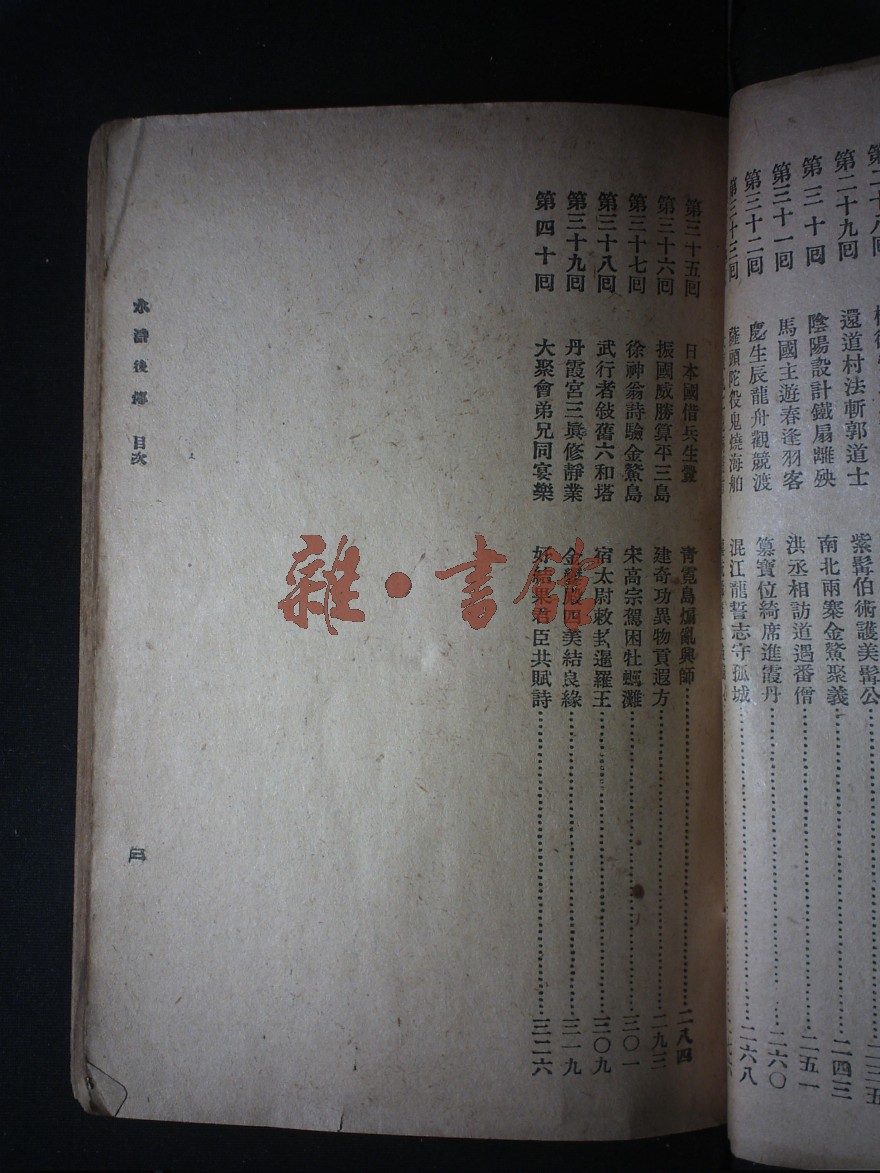 還道村法斬郭道士 紫髯伯術護美髯公
第二十九回 陰陽設計鐵扇離殃 南北兩寨金鰲聚義 二四三
第三十回 馬國主遊春逢羽客 洪丞相訪道遇番僧 二五一
第三十一回 慶生辰龍舟觀競渡 篡寶位綺席進霞丹 二六〇
第三十二回 薩頭陀役鬼燒海舶 混江龍誓志守孤城 二六八
第三十三回
第三十五回 日本國借兵生釁 青霓島煽亂興師 二八四
第三十六回 振國威勝算平三島 建奇功異物貢遐方 二九三
第三十七回 徐神翁詩驗金鰲島 宋高宗駕困牡蠣灘 三〇一
第三十八回 武行者敍舊六和塔 宿太尉敕封暹羅王 三〇九
第三十九回 丹霞宮三眞修靜業 金鑾殿四美結良緣 三一九
第四十回 大聚會弟兄同宴樂 好結果君臣共賦詩 三二六
水滸後傳 目次
三
雜·書館